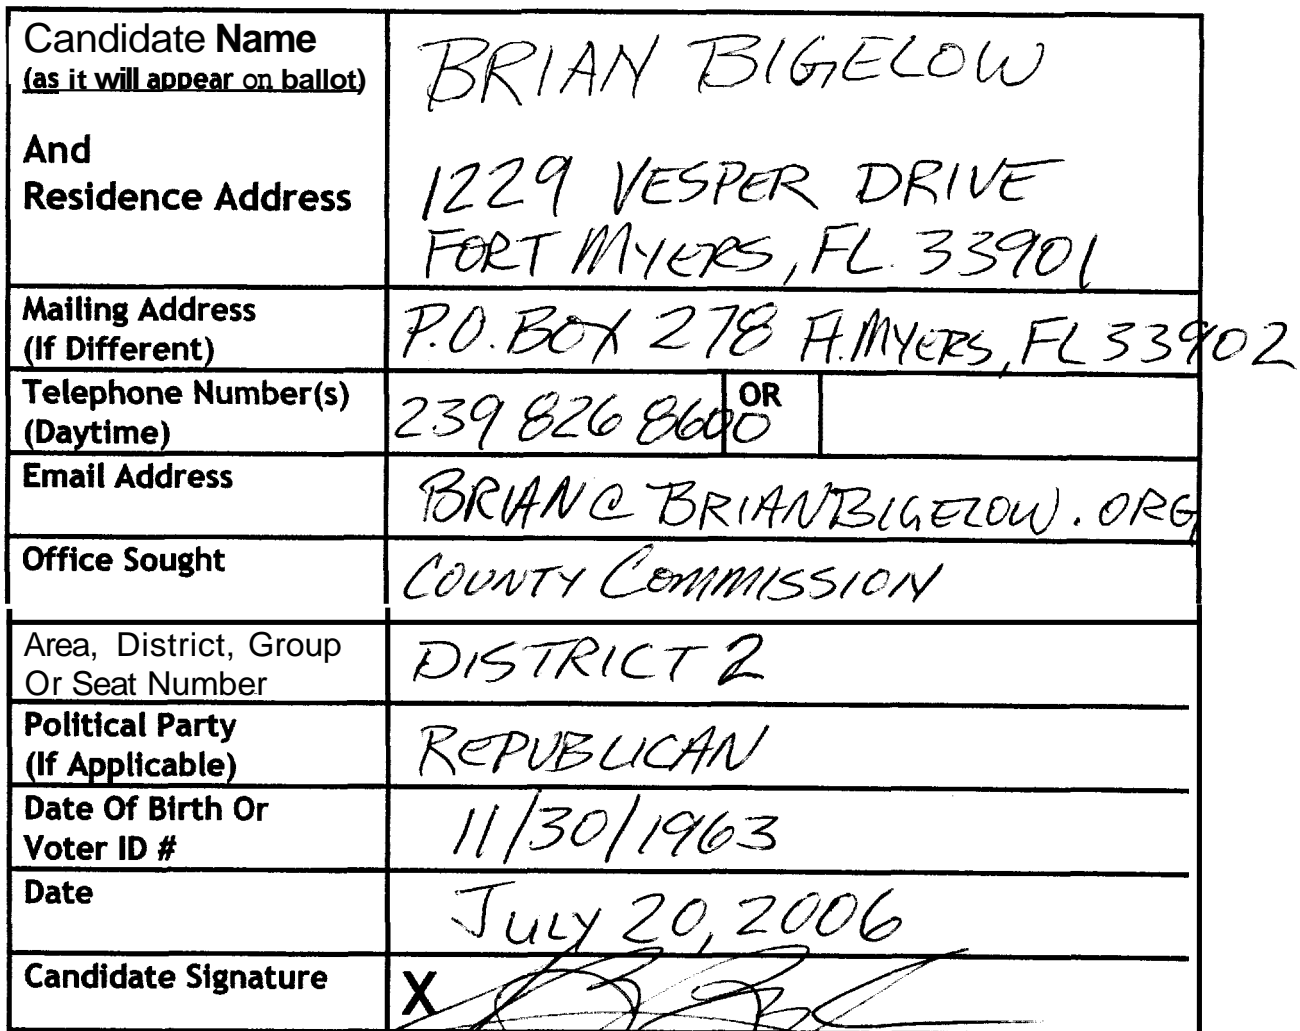 Candidate Name
(as it will appear on ballot)
BRIAN BIGELOW
And
Residence Address
1229 VESPER DRIVE
FORT MYERS, FL. 33901
Mailing Address
(If Different)
P.O. BOX 278 Ft. MYERS, FL 33902
Telephone Number(s)
(Daytime)
239 826 8600
OR
Email Address
BRIAN@BRIANBIGELOW.ORG
Office Sought
COUNTY COMMISSION
Area, District, Group
Or Seat Number
DISTRICT 2
Political Party
(If Applicable)
REPUBLICAN
Date Of Birth Or
Voter ID #
11/30/1963
Date
JULY 20, 2006
Candidate Signature
X